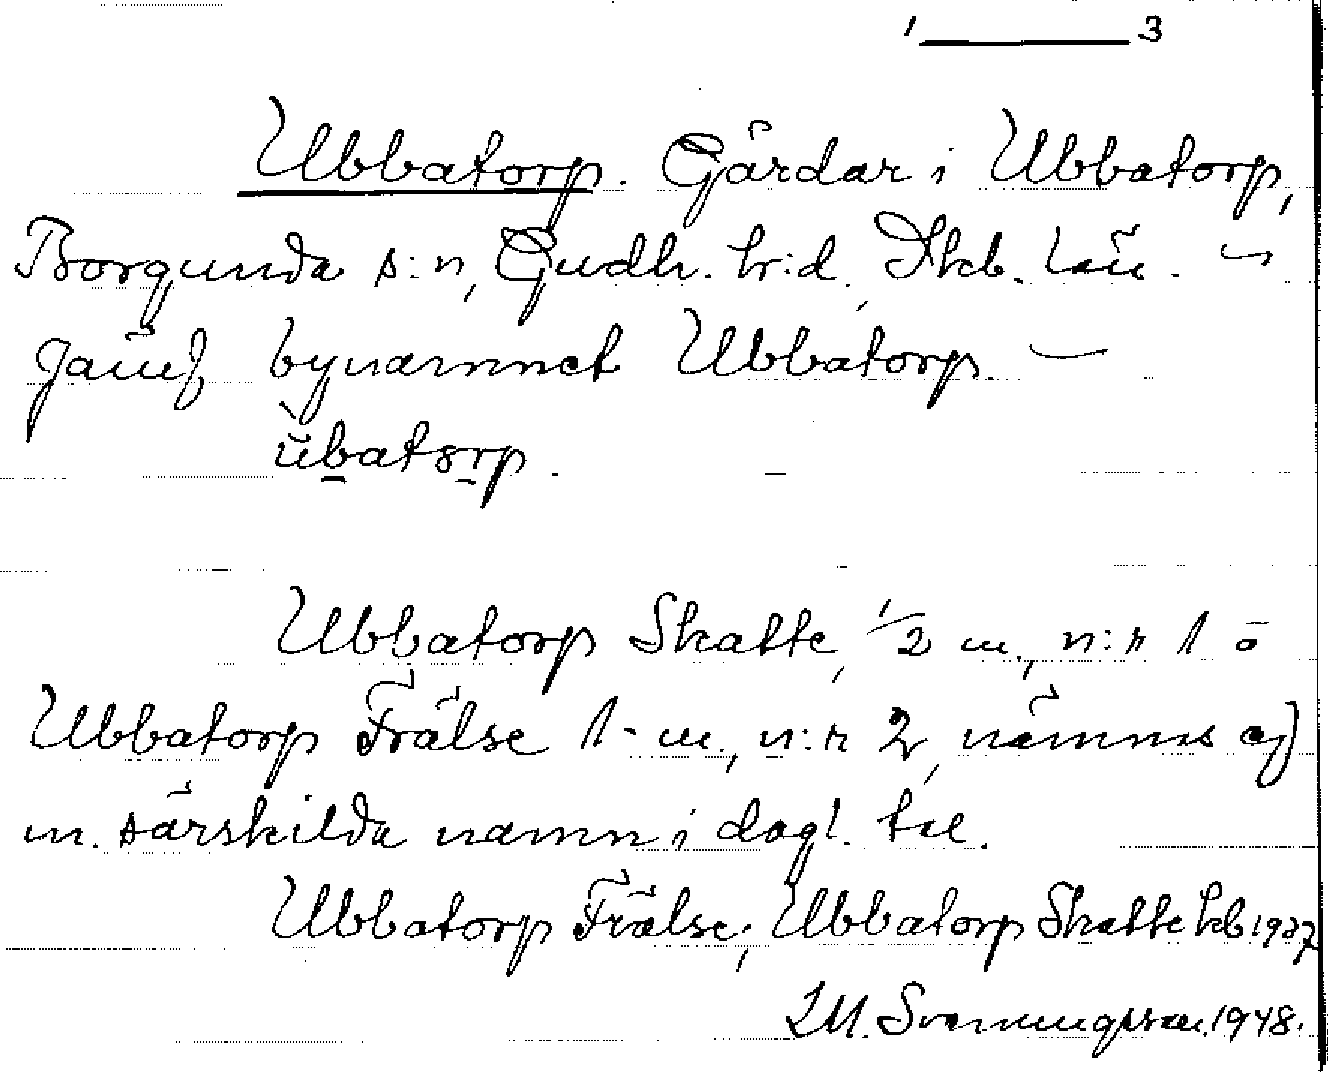 1 — 3
Ubbatorp. Gårdar i Ubbatorp,
Borgunda s:n, Gudh. hr:d, Skb. län. –
Jämf bynamnet Ubbatorp. –
ùbatorp.
Ubbatorp Skatte, 1/2 m., n:r 1 o
Ubbatorp Frälse 1 m., n:r 2, nämnas ej
m. särskilda namn i dagl. tal.
Ubbatorp Frälse, Ubbatorp Skatte kb 1937
L M. Svenungsson 1948.